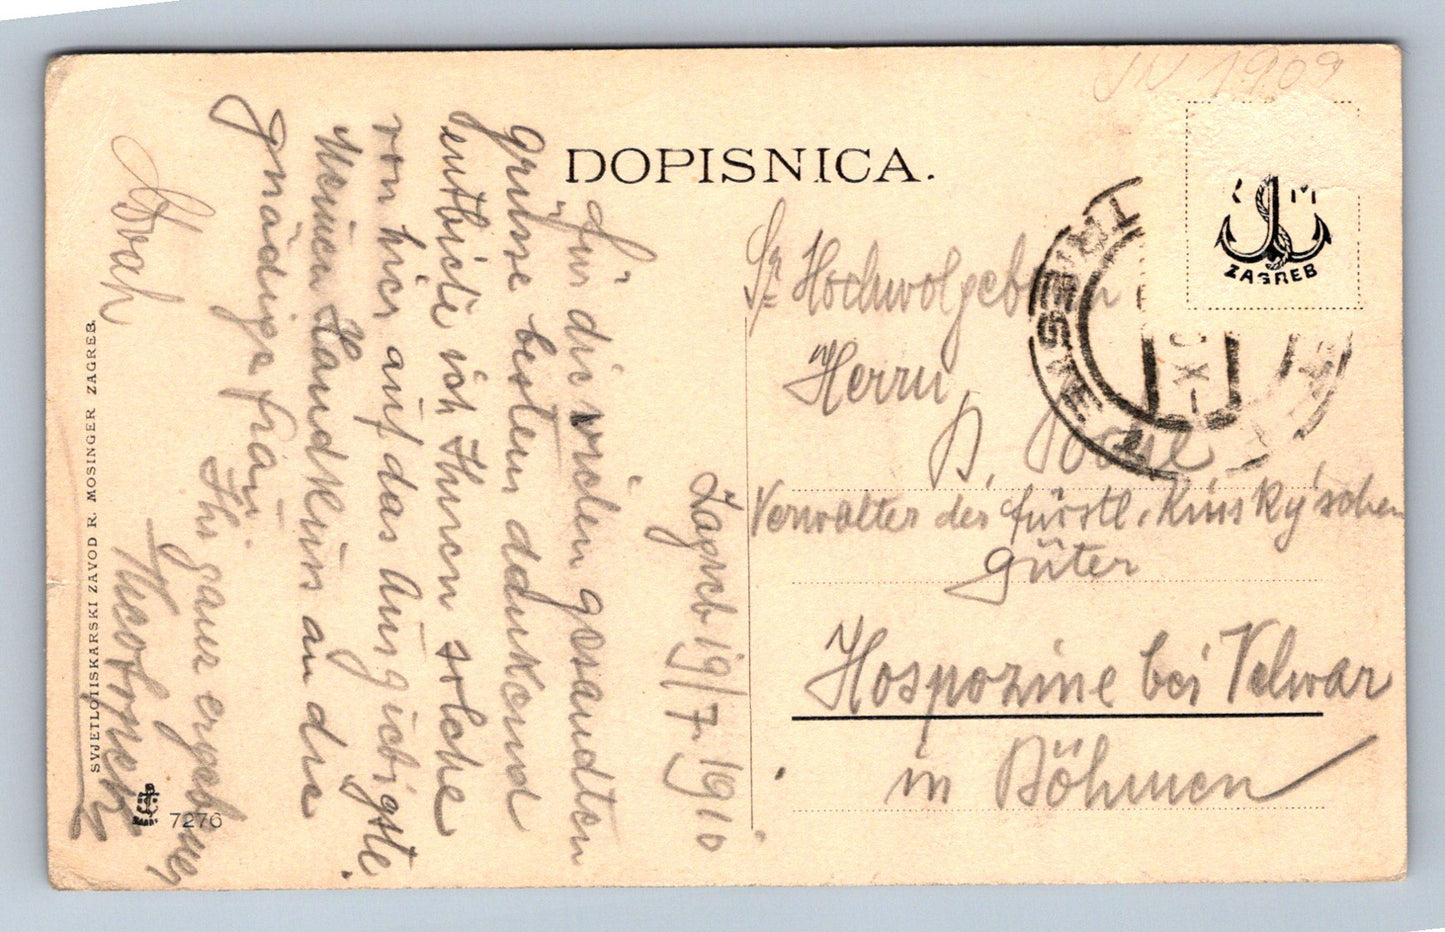 IV 1909
DOPISNICA.
ZAGREB
TRIESTE
Sr Hochwolgeboren
Herrn
Verwalter der fürstl. Kinsky'schen
Güter
Hospozine bei Velwar
in Böhmen
Zagreb 19/7 1910
Für die vielen gesandten
Grüsse bestens dankend
entbiete ich Ihnen solche
von hier auf das Ausgiebigste.
Meinen Handkuss an die
gnädige Frau.
Ihr ganz ergebener
SVJETLOTISKARSKI ZAVOD R. MOSINGER ZAGREB.
7276